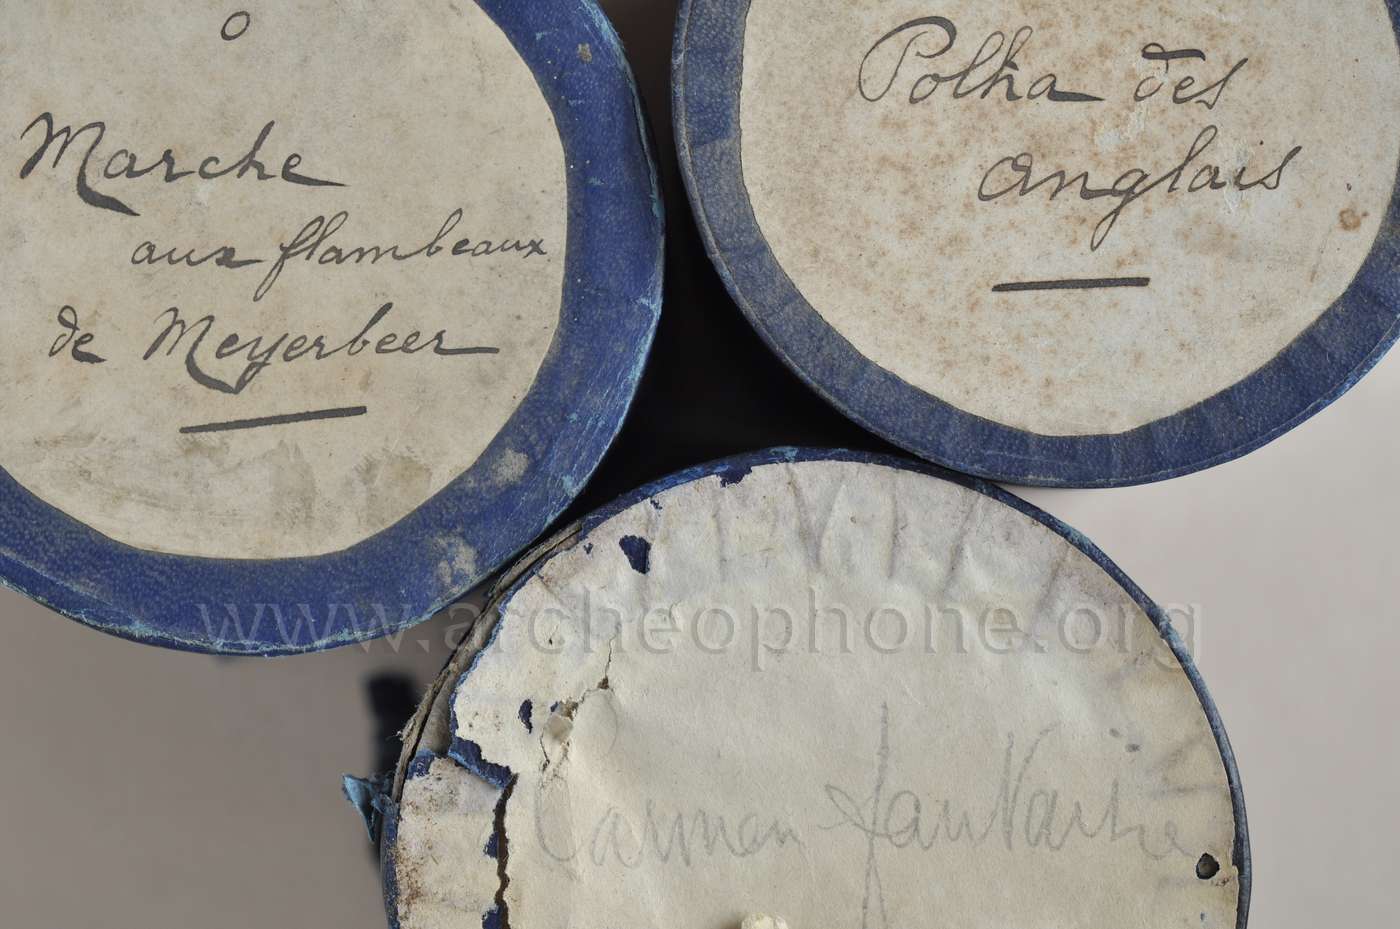 o
Marche
aux flambeaux
de Meyerbeer
Polka des
anglais
www.archeophone.org
Carmen fantaisie